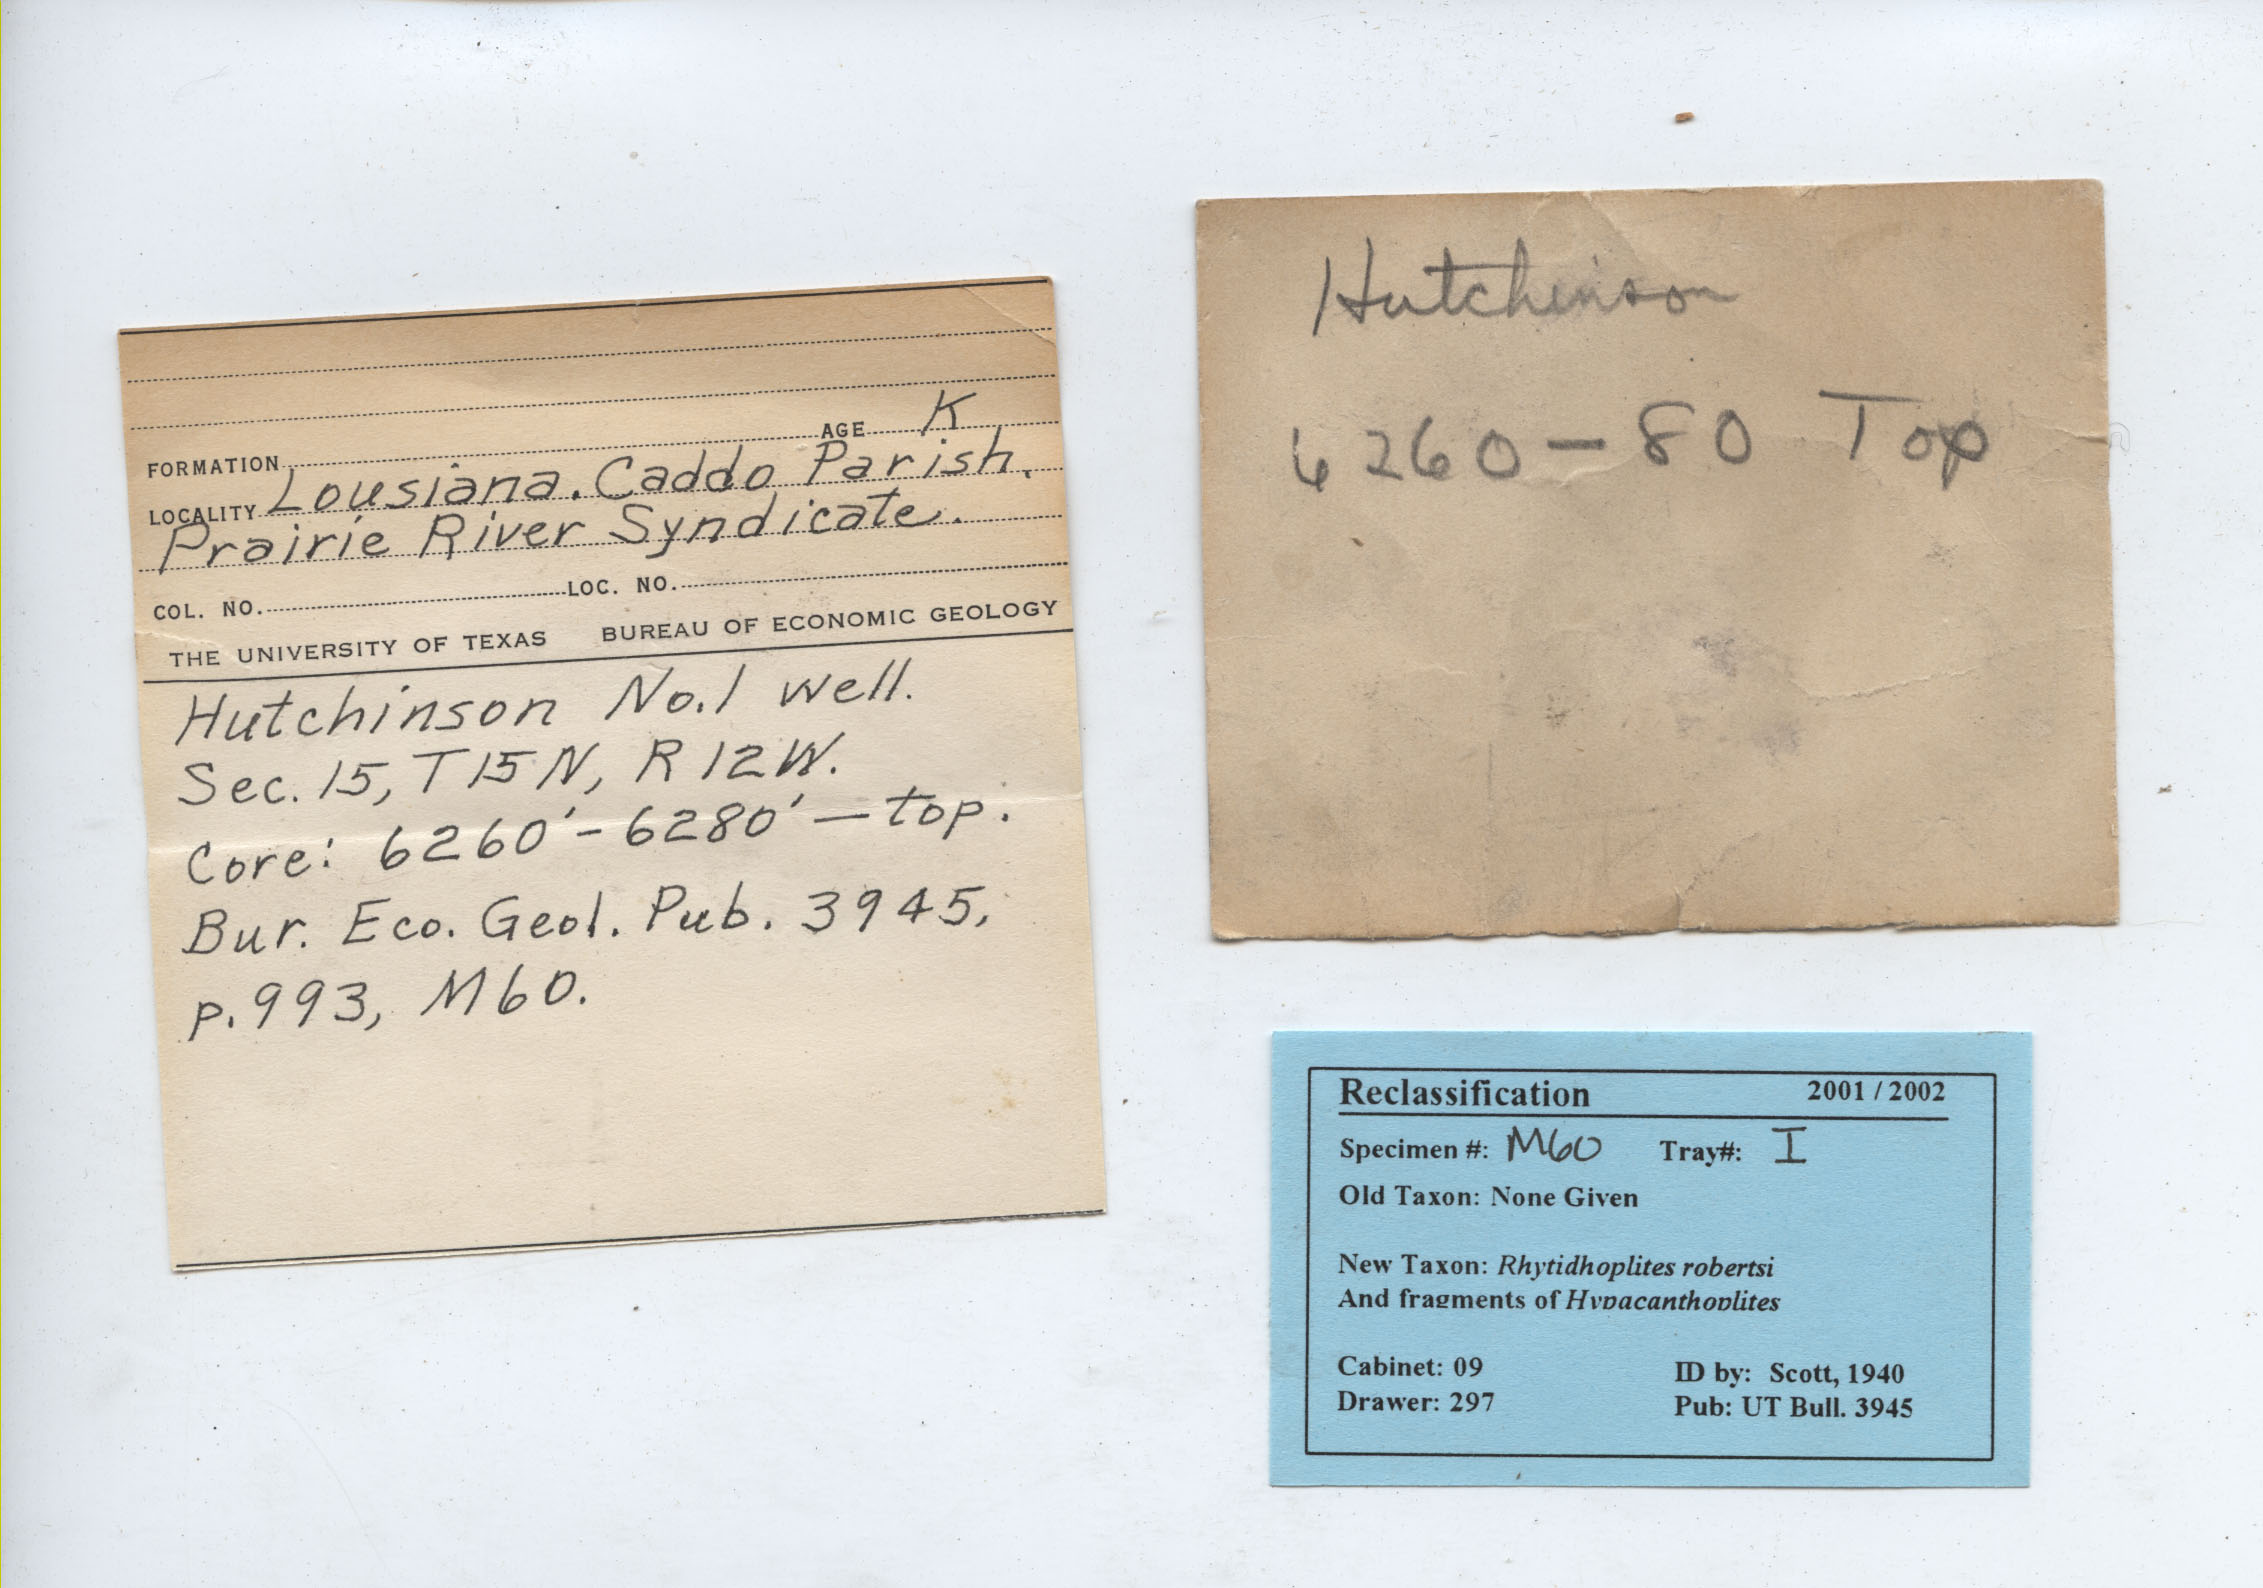 AGE K
FORMATION
LOCALITY Lousiana. Caddo Parish.
Prairie River Syndicate.
COL. NO. LOC. NO.
THE UNIVERSITY OF TEXAS BUREAU OF ECONOMIC GEOLOGY
Hutchinson No.1 well.
Sec. 15, T15N, R12W.
Core: 6260'-6280'—top.
Bur. Eco. Geol. Pub. 3945,
p.993, M60.
Hutchinson
6260-80 Top
Reclassification 2001 / 2002
Specimen #: M60 Tray#: I
Old Taxon: None Given
New Taxon: Rhytidhoplites robertsi
And fragments of Hypacanthoplites
Cabinet: 09 ID by: Scott, 1940
Drawer: 297 Pub: UT Bull. 3945